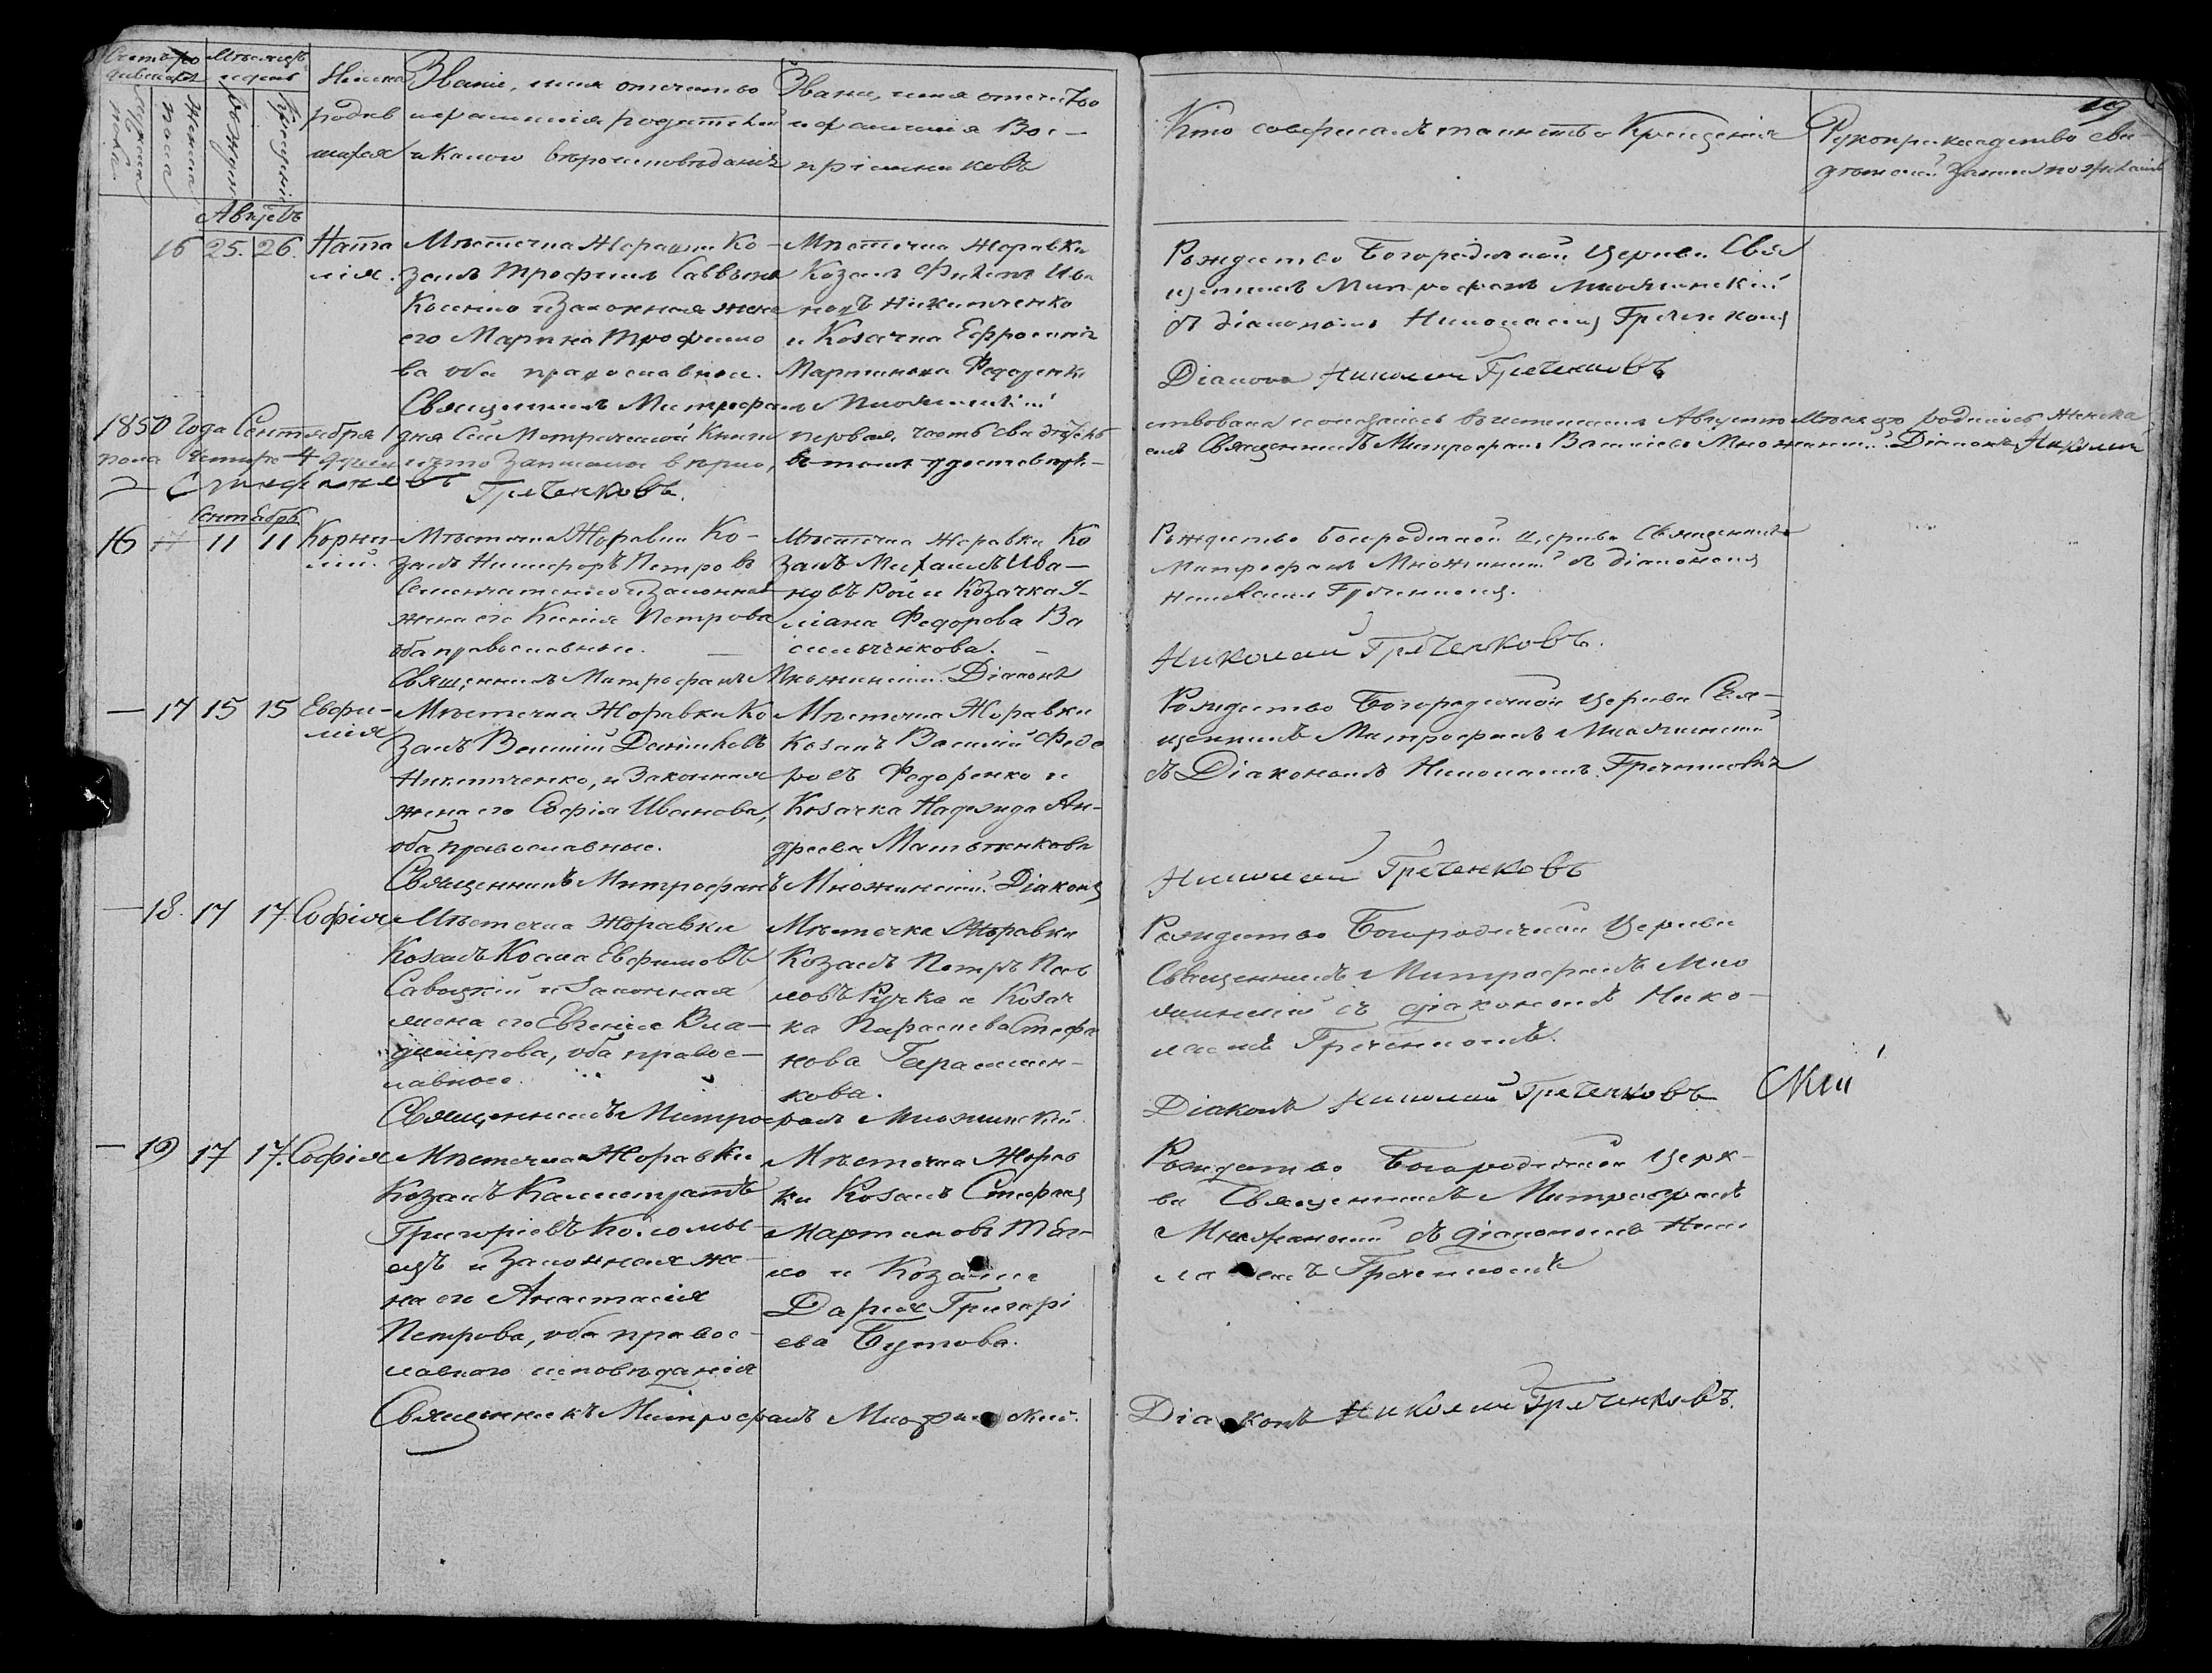 19
Счетъ родившихся
Мѣсяцъ и день
Имена родившихся
Званіе, имя отчество и фамилія родителей и какого вѣроисповѣданія
Званіе, имя отчество и фамилія Воспріемниковъ
Кто совершалъ таинство Крещенія
Рукоприкладство свидѣтелей записи по желанію
Мужеска пола
Женска пола
рожденія
крещенія
Августъ
16 25. 26. Ната
лія.
Мѣстечка Жоравки Ко-
закъ Трофимъ Саввинъ
Косенко и Законная жена
его Марина Трофимо
ва оба православные.
Мѣстечка Жоравки
Козакъ Филипъ Ива
новъ Никитченко
и Козачка Ефросинія
Мартинова Федоренк
Рождество Богородичной Церкви Свя
щенникъ Митрофанъ Множинскій
съ діакономъ Николаемъ Греченковы
Священникъ Митрофанъ Множинскій
Діаконъ Николай Греченковъ
1850 Года Сентября 1 дня Сей Метрической Книги первая, часть свидѣтель
ствована и оказалось въ истекшемъ Августѣ Мѣсяцѣ родилось женска
пола четыре 4 души и что записаны вѣрно, въ томъ удостовѣря-
емъ Священникъ Митрофанъ Василіевъ Множинскій. Діаконъ Николай
Стефановъ Греченковъ.
Сентябрь
16 11 11 Корни-
лій.
Мѣстечка Жоравки Ко-
закъ Никифоръ Петровъ
и Законная
жена его Ксенія Петрова
оба православные.
Мѣстечка Жоравки Ко
закъ Михаилъ Ива-
новъ Рой и Козачка У-
ліана Федорова Ва
сильченкова.
Рождество Богородичной Церкви Священникъ
Митрофанъ Множинскій съ діакономъ
Николаемъ Греченковы.
Священникъ Митрофанъ Множинскій. Діаконъ
Николай Греченковъ.
— 17 15 15 Евфи-
мія
Мѣстечка Жоравки Ко
закъ Василій
Никитченко, и Законная
жена его Софія Иванова,
оба православные.
Мѣстечка Жоравки
Козакъ Василій Федо
ровъ Федоренко и
Козачка Надежда Ан-
дреева
Рождество Богородичной Церкви Свя-
щенникъ Митрофанъ Множинскій
съ Діакономъ Николаемъ Греченковымъ
Священникъ Митрофанъ Множинскій. Діаконъ
Николай Греченковъ
— 18. 17 17. Софія
Мѣстечка Жоравки
Козакъ Косма Евфимовъ
Савицкій и Законная
жена его Евгенія Вла-
димірова, оба правос-
лавные.
Мѣстечка Жоравки
Козакъ Петръ Пав
ловъ Ручка и Козач
ка Параскева Стефа
нова Герасимен-
кова.
Рождество Богородичной Церкви
Священникъ Митрофанъ Мно
жинскій съ діакономъ Нико-
лаемъ Греченковы.
Священникъ Митрофанъ Множинскій
Діаконъ Николай Греченковъ
скій
— 19 17 17. Софія
Мѣстечка Жоравки
Козакъ Калистратъ
Григоріевъ Коломы-
ецъ и Законная же-
на его Анастасія
Петрова, оба правос-
лавного исповѣданія
Мѣстечка Жорав
ки Козакъ Стефанъ
Мартиновъ
и Козачка
Дарія Григорі
ева Бутова.
Рождество Богородичной Церк-
ви Священникъ Митрофанъ
Множинскій съ діакономъ Нико
лаемъ Греченковы
Священникъ Митрофанъ Множинскій.
Діаконъ Николай Греченковъ.